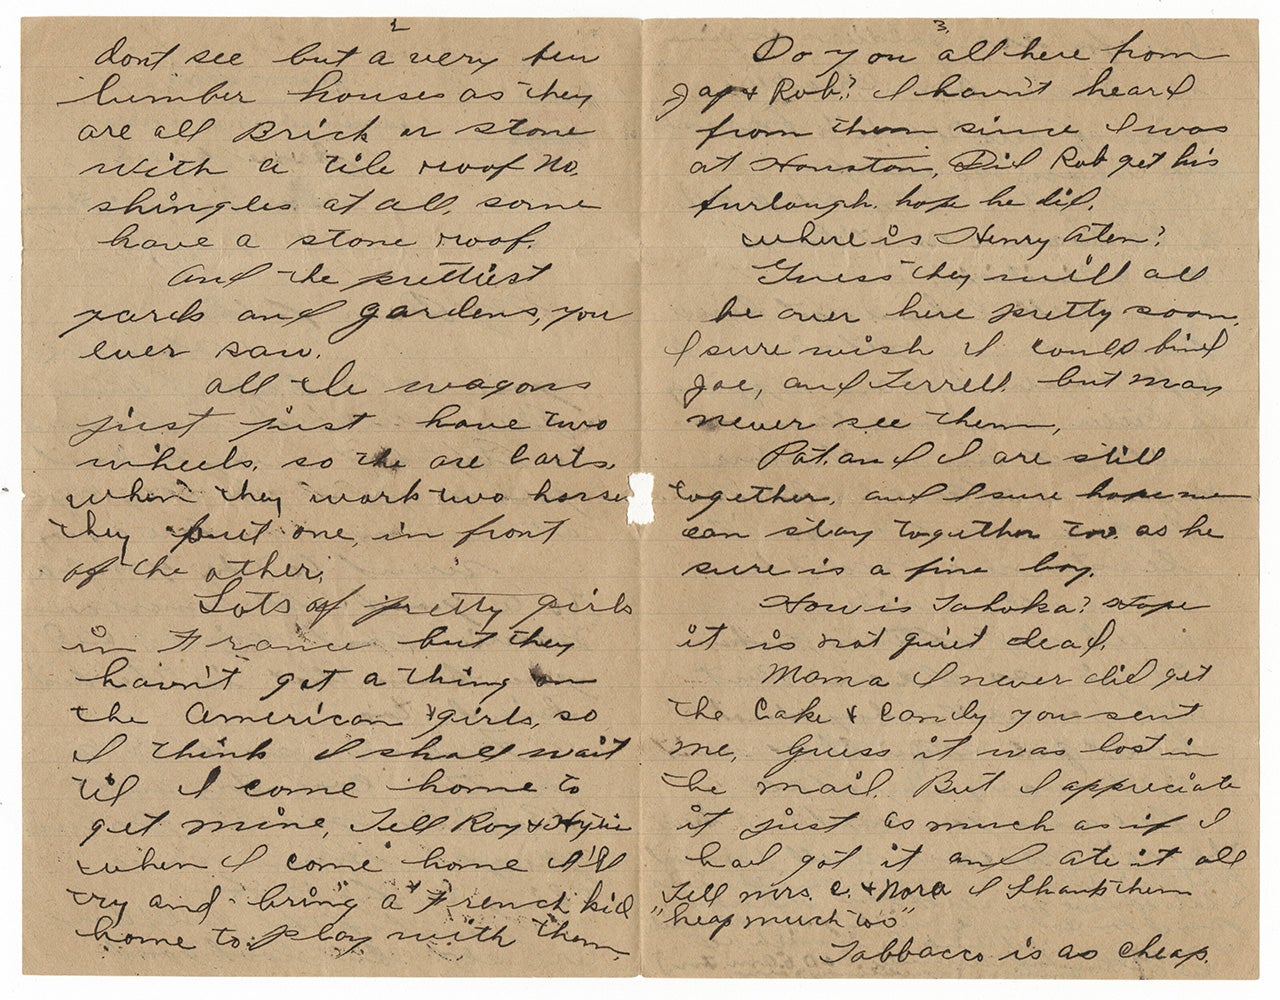 2
dont see but a very few
lumber houses as they
are all Brick or stone
with a tile roof no.
shingles at all. some
have a stone roof.
And the prettiest
yards and gardens, you
ever saw.
all the wagons
just just have two
wheels. so the are Carts.
when they work two horse
they put one, in front
of the other.
Lots of pretty girls
in France but they
havn't got a thing on
the American girls, so
I think I shall wait
til I come home to
get mine, Tell Roy &
when I come home I'll
try and bring a French kid
home to play with them.
3
Do you all here from
Jap & Rob? I havn't heard
from them since I was
at Houston, Did Rob get his
furlough. hope he did.
where is Henry Aten?
Guess they will all
be over here pretty soon.
I sure wish I could find
Joe, and Terrell. but may
never see them,
Pat. and I are still
together, and I sure hope we
can stay together too. as he
sure is a fine boy.
How is Tahoka? Hope
it is not quiet dead.
Mama I never did get
the Cake & Candy you sent
me, Guess it was lost in
the mail. But I appreciate
it just as much as if I
had got it and ate it all
Tell mrs. C. & Nora I thank them
"heap much too"
Tabbacco is as cheap.